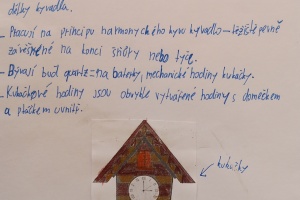 délky kyvadla.
- Pracují na principu harmonického kyvu kyvadlo - těžiště pevně
zavěšené na konci šňůry nebo tyče.
- Bývají buď quartz = na baterky, mechanické hodiny kukačky.
- Kukačkové hodiny jsou obvykle vytvářené hodiny s domečkem
a ptáčkem uvnitř.
kukačky